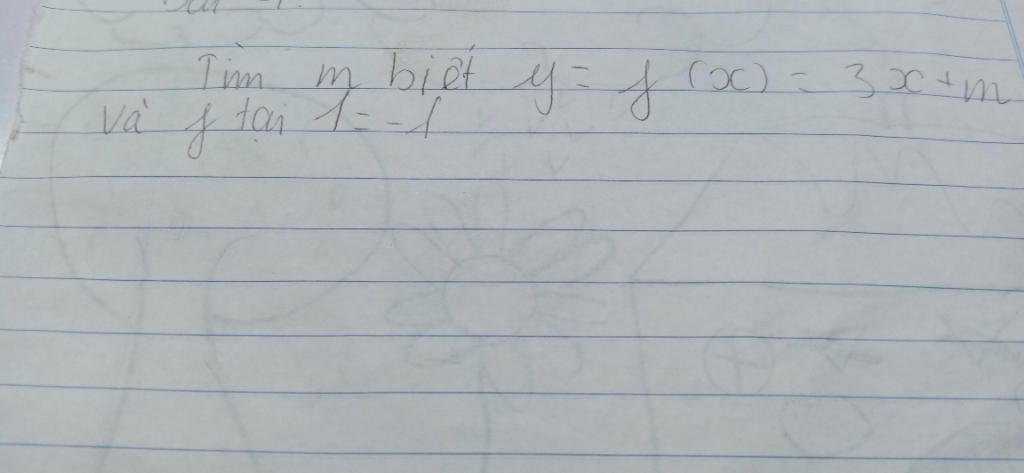 Tìm m biết y = f (x) = 3x + m
và f tại 1 = -1